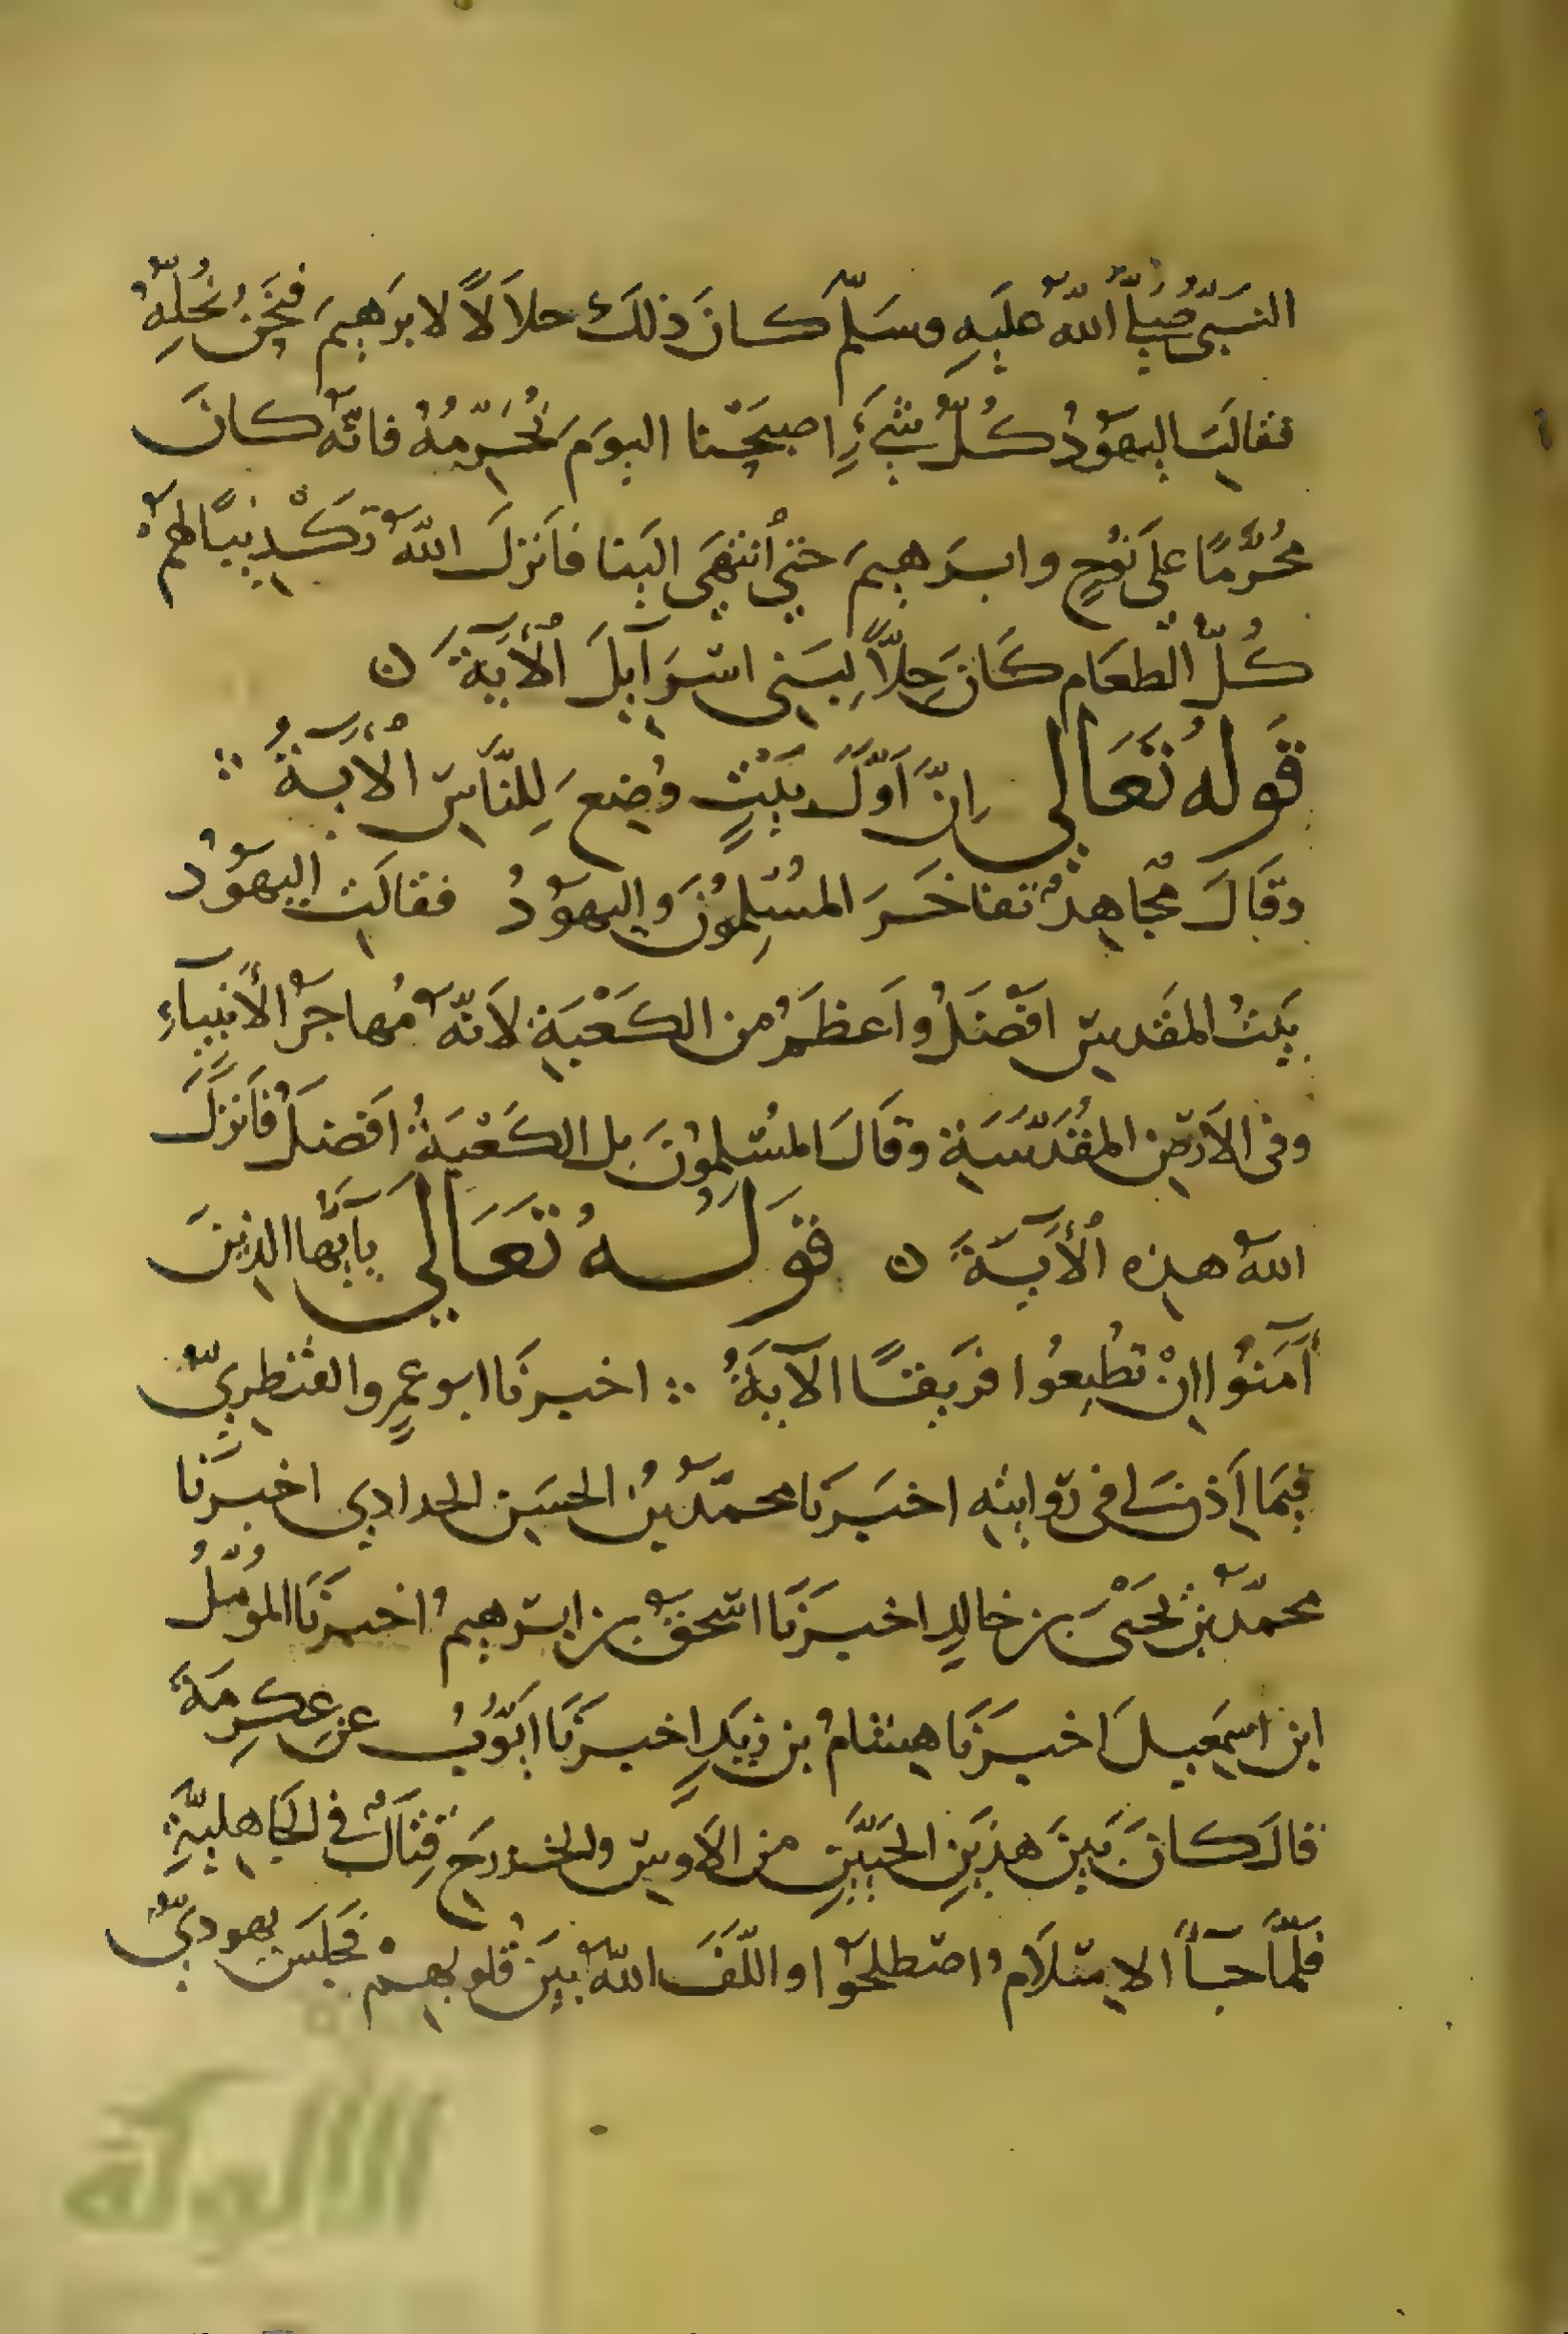 النَبىّ صَلىّ اللّه علَيهِ وسَلّم كانَ ذلكَ حلالاً لابرَهيمَ فنَحْن نُحلّهُ
فقالَت اليهوْدُ كُلّ شَىءٍ اصبحَنا اليومَ نُحَرّمُهُ فانّه كانَ
محُرَّمًا على نُوحٍ وابرَهيمَ حتى اُنتهَى اليَنا فاَنزلَ اللّه تَكْذيبًا لهم
كُلّ الْطعَام كَانَ حِلاًّ لِبَنى اسْرَآيلَ اْلأَيَةَ ن
قَولهُ تَعَالى اِنَّ اَوَّلَ بَيْتٍ وُضِعَ لِلنَّاسِ اْلأيَةُ ∴
وقَالَ مُجاهدٌ تفاخَرَ المسُلِمُونَ واليهوْدُ فقالَت اليهَوْدُ
بَيتُ المقَدسِ افَضَلُ واَعظَمُ من الكَعْبَةِ لاَنّه مُهاجَرُ الأَنبيآءِ
وفى الاَرضِ المقُدّسَةِ وقَالَ المسُلِمُونَ بل الكَعْبَةُ افَضَلُ فاَنزَلَ
اللّهُ هذِه اْلأَيَةَ ن قَولُهُ تَعَالَى يآيَّها الذِينَ
آمَنُوا اِنْ تطُيعُوا فرَيقًا الآيَةَ ∴ اخبرنَا ابو عمرٍو القنطرىّ
فيمَا اَذن لى فى رَوايتهِ اخبَرنَا محمّدُ بنُ الحسَين الحدادي اخبرَنا
محمّد بنُ يحَيْىَ بن خالدٍ اخبَرنَا اسْحق بن ابرَهيمُ اخبرَنَا الموُمّلُ
ابن اسمَعيلَ اخبرَنَا هشامُ بن زيَدٍ اخبرَنَا ايّوبُ عن عكرِمَةَ
قالَ كانَ بَينَ هذَينِ الحَيَّينِ من الاَوسِ والخزرَج قِتالٌ فى الجاهليَّةِ
فلمّا جآءَ الاسْلَامُ اصْطلحَوا والّفَ اللّه بيَن قُلوبهمْ فجَلسَ يهودىّ
الألوكة